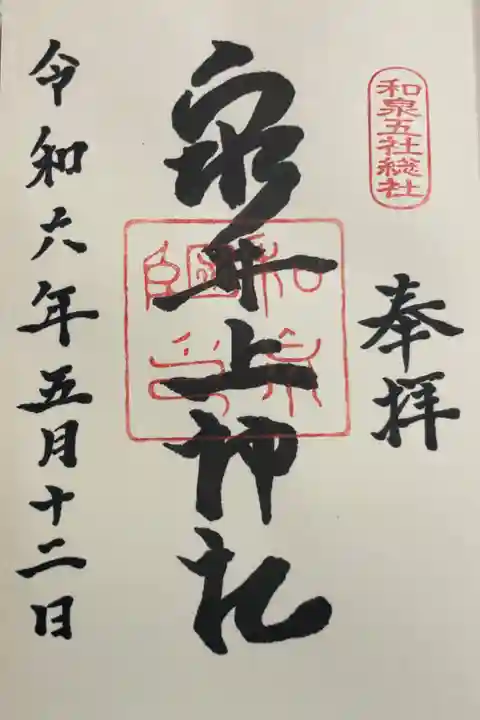 和泉五社総社
奉拝
泉井上神社
和泉國印
令和六年五月十二日